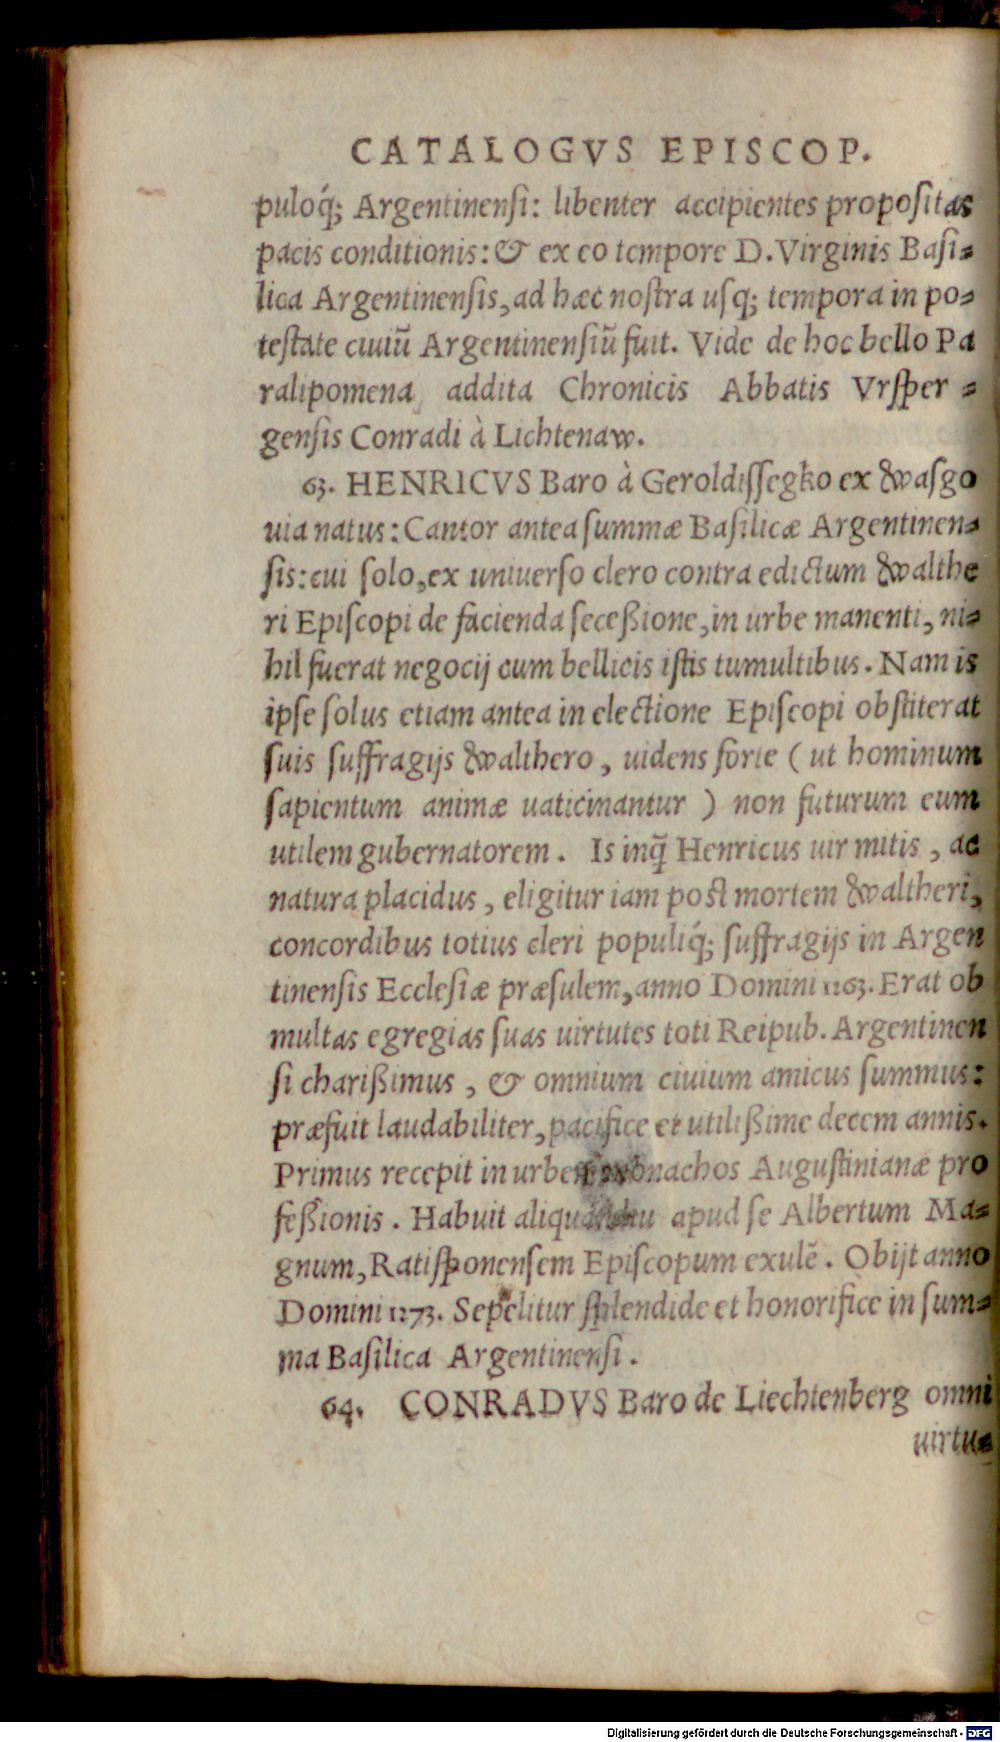 CATALOGVS EPISCOP.
puloq́; Argentinensi: libenter accipientes propositas
pacis conditionis: & ex eo tempore D. Virginis Basi-
lica Argentinensis, ad hæc nostra usq; tempora in po-
testate ciuiũ Argentinensiũ fuit. Vide de hoc bello Pa
ralipomena addita Chronicis Abbatis Vrsper-
gensis Conradi à Lichtenaw.
63. HENRICVS Baro à Geroldissegko ex Wasgo
uia natus: Cantor antea summæ Basilicæ Argentinen-
sis: cui solo, ex uniuerso clero contra edictum Walthe
ri Episcopi de facienda seceßione, in urbe manenti, ni-
hil fuerat negocij cum bellicis istis tumultibus. Nam is
ipse solus etiam antea in electione Episcopi obstiterat
suis suffragijs Walthero, uidens forte ( ut hominum
sapientum animæ uaticinantur ) non futurum eum
utilem gubernatorem. Is inq̃ Henricus uir mitis, ac
natura placidus, eligitur iam post mortem Waltheri,
concordibus totius cleri populiq́; suffragijs in Argen
tinensis Ecclesiæ præsulem, anno Domini 1263. Erat ob
multas egregias suas uirtutes toti Reipub. Argentinen
si charißimus, & omnium ciuium amicus summus:
præfuit laudabiliter, pacifice et utilißime decem annis.
Primus recepit in urbem monachos Augustinianæ pro
feßionis. Habuit aliquandiu apud se Albertum Ma-
gnum, Ratisponensem Episcopum exulẽ. Obijt anno
Domini 1273. Sepelitur splendide et honorifice in sum-
ma Basilica Argentinensi.
64. CONRADVS Baro de Liechtenberg omni
uirtu-
Digitalisierung gefördert durch die Deutsche Forschungsgemeinschaft - DFG